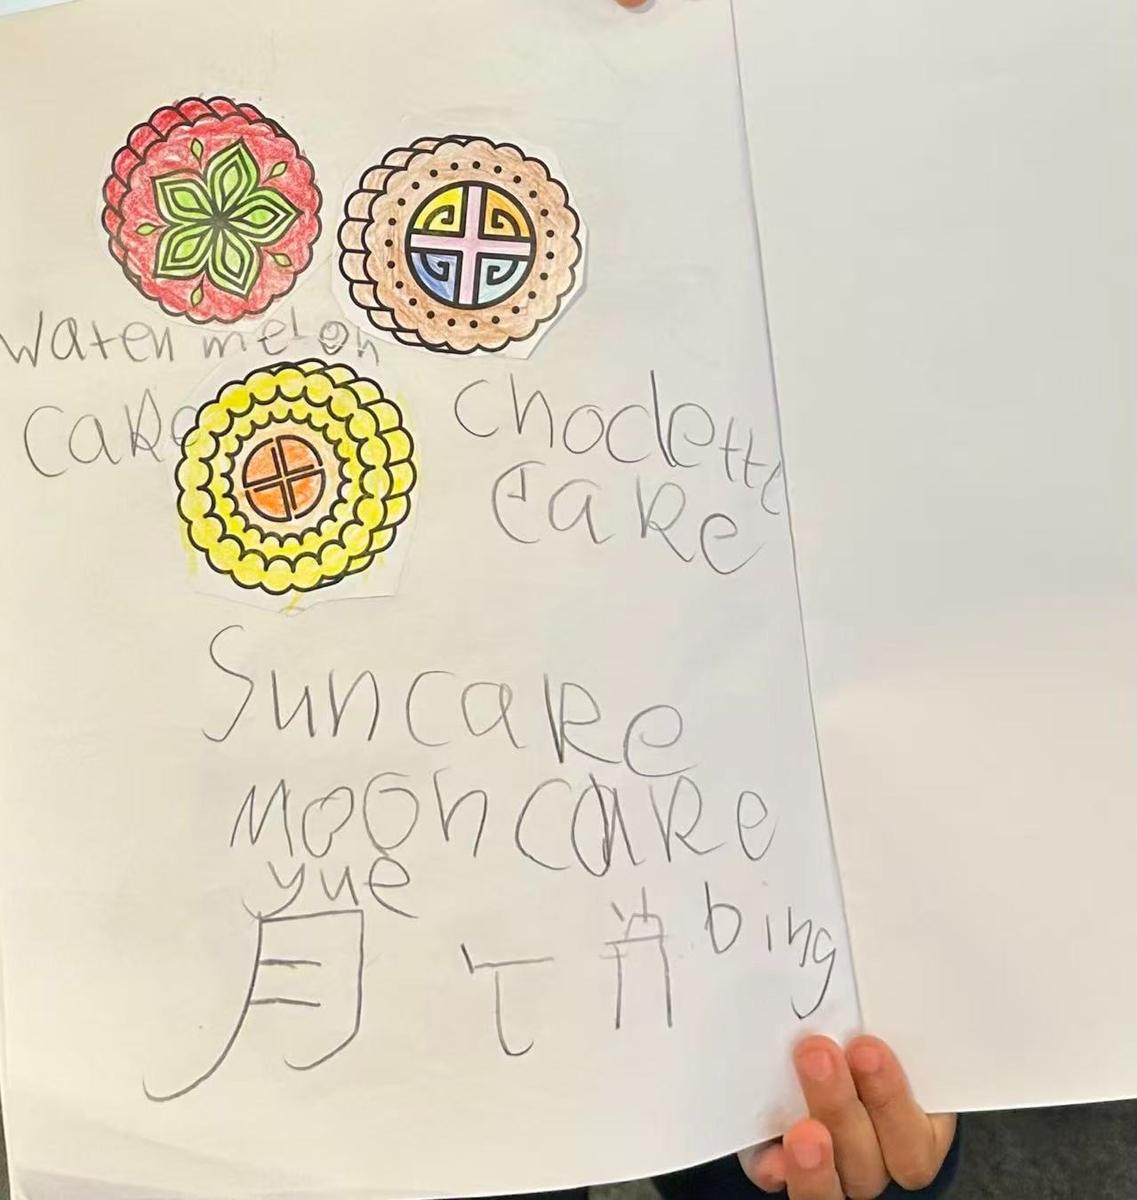 Watermelon
cake
chocletté
cake
Suncake
Mooncake
yue
bing
月饼